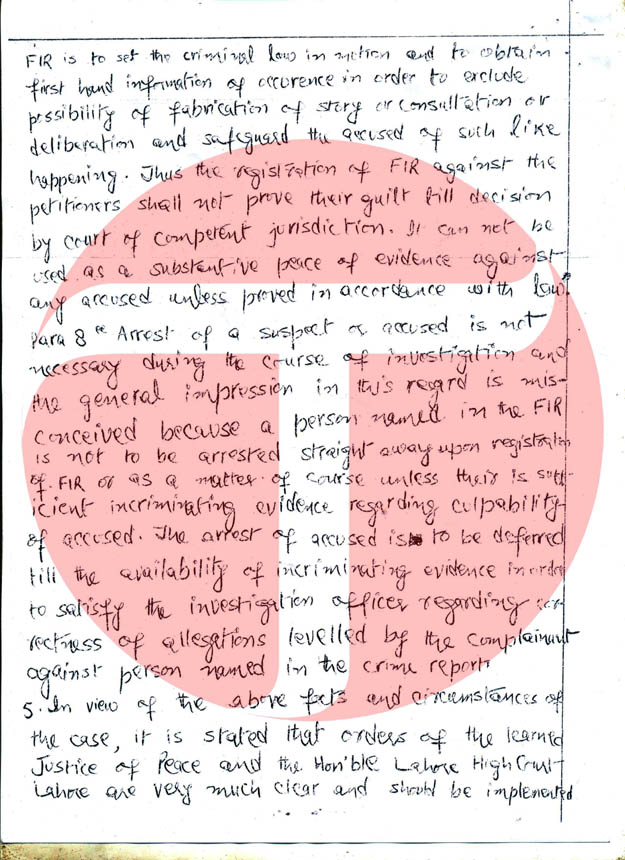 FIR is to set the criminal law in motion and to obtain
first hand information of occurence in order to exclude
possibility of fabrication of story or consultation or
deliberation and safeguard the accused of such like
happening. Thus the registration of FIR against the
petitioners shall not prove their guilt till decision
by court of competent jurisdiction. It can not be
used as a substantive peace of evidence against
any accused unless proved in accordance with law."
Para 8 " Arrest of a suspect or accused is not
necessary during the course of investigation and
the general impression in this regard is mis-
conceived because a person named in the FIR
is not to be arrested straight away upon registration
of FIR or as a matter of course unless their is suff
icient incriminating evidence regarding culpability
of accused. The arrest of accused is to be deferred
till the availability of incriminating evidence in order
to satisfy the investigation officer regarding cor-
rectness of allegations levelled by the complainant
against person named in the crime report.
5. In view of the above facts and circumstances of
the case, it is stated that orders of the learned
Justice of Peace and the Hon'ble Lahore High Court
Lahore are very much clear and should be implemented